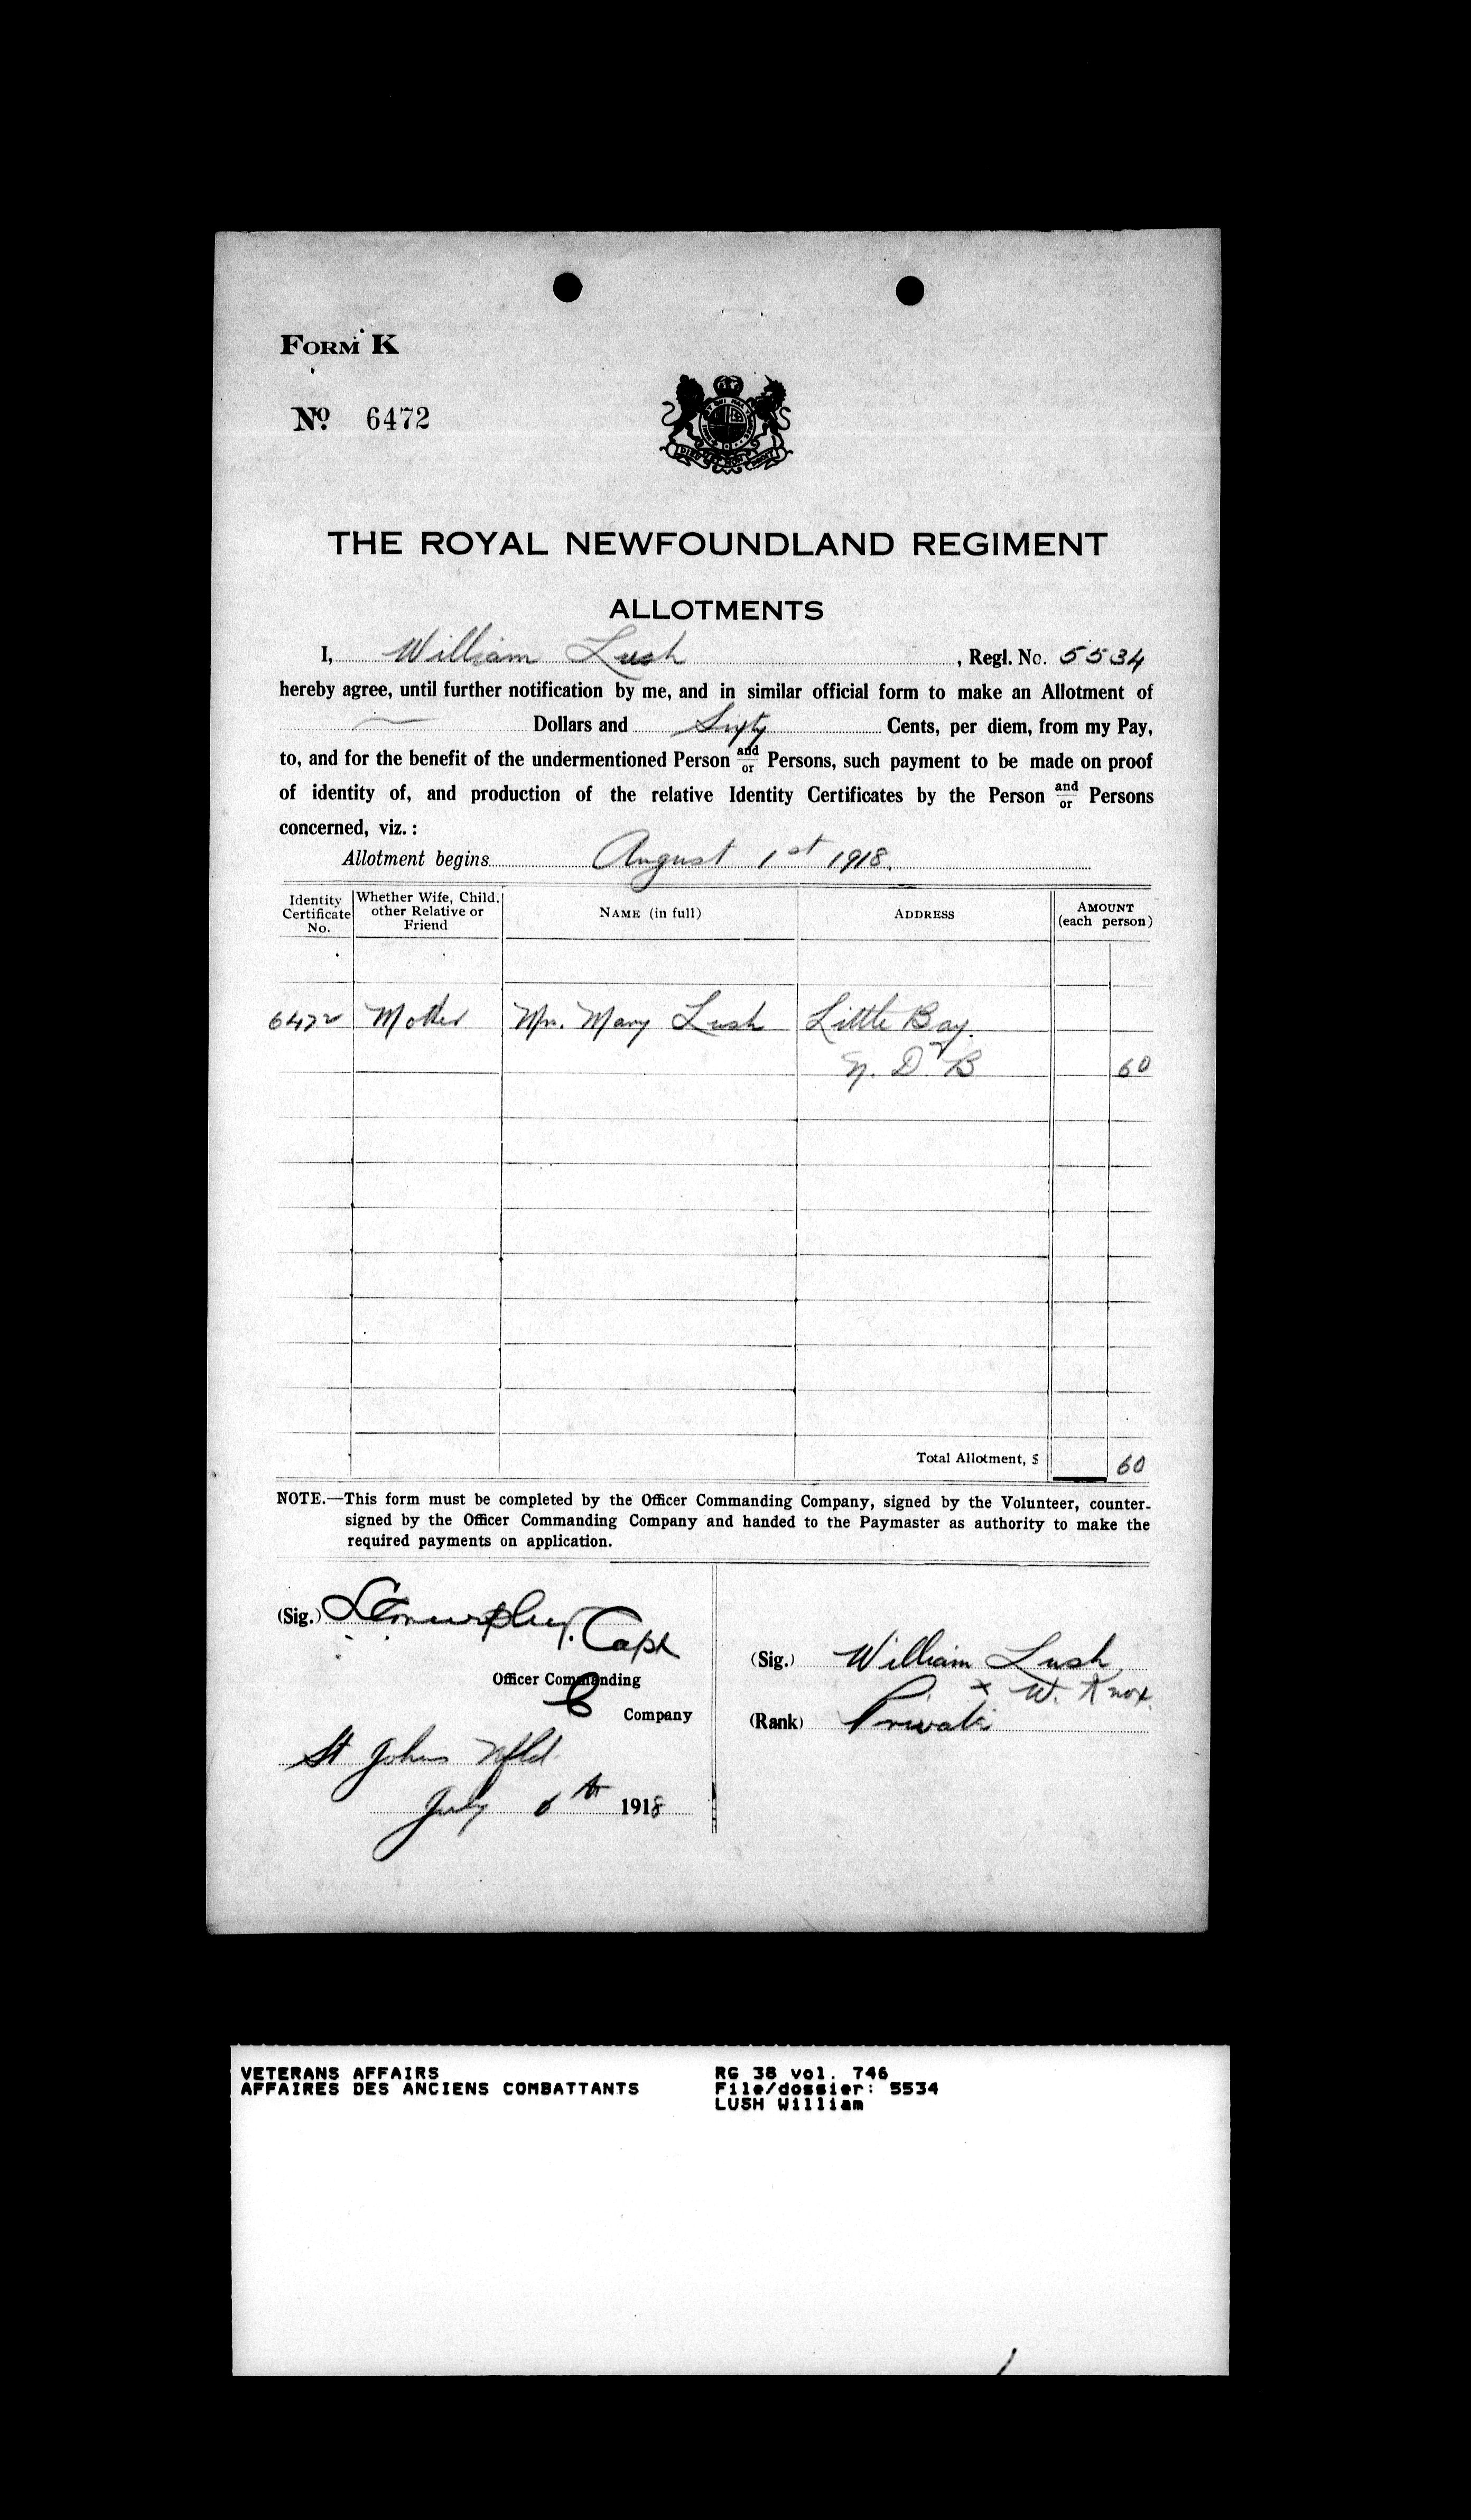 FORM K
No. 6472
THE ROYAL NEWFOUNDLAND REGIMENT
ALLOTMENTS
I, William Lush, Regl. No. 5534
hereby agree, until further notification by me, and in similar official form to make an Allotment of
— Dollars and Sixty Cents, per diem, from my Pay,
to, and for the benefit of the undermentioned Person and/or Persons, such payment to be made on proof
of identity of, and production of the relative Identity Certificates by the Person and/or Persons
concerned, viz.:
Allotment begins August 1st 1918.
Identity Certificate No. | Whether Wife, Child, other Relative or Friend | NAME (in full) | ADDRESS | AMOUNT (each person)
6472 | Mother | Mrs. Mary Lush | Little Bay.
N. D. B | 60
Total Allotment, $ 60
NOTE.—This form must be completed by the Officer Commanding Company, signed by the Volunteer, counter-
signed by the Officer Commanding Company and handed to the Paymaster as authority to make the
required payments on application.
(Sig.) Murphy. Capt
Officer Commanding
C Company
St Johns Nfld.
July 6th 1918
(Sig.) William Lush
x W. Knox.
(Rank) Private
VETERANS AFFAIRS
AFFAIRES DES ANCIENS COMBATTANTS
RG 38 vol. 746
File/dossier: 5534
LUSH William